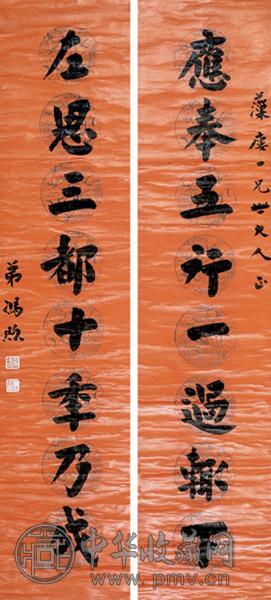 藻一兄世大人正
應奉五行一過輒下
左思三都十秊乃成
弟馮煦
中华收藏网
www.pmv.cn